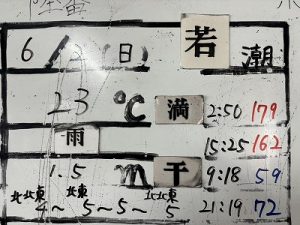 6/1(日) 若潮
23℃ 満 2:50 179
雨 15:25 162
1.5m 干 9:18 59
北北東 北東 北北東
4~5~5~5 21:19 72